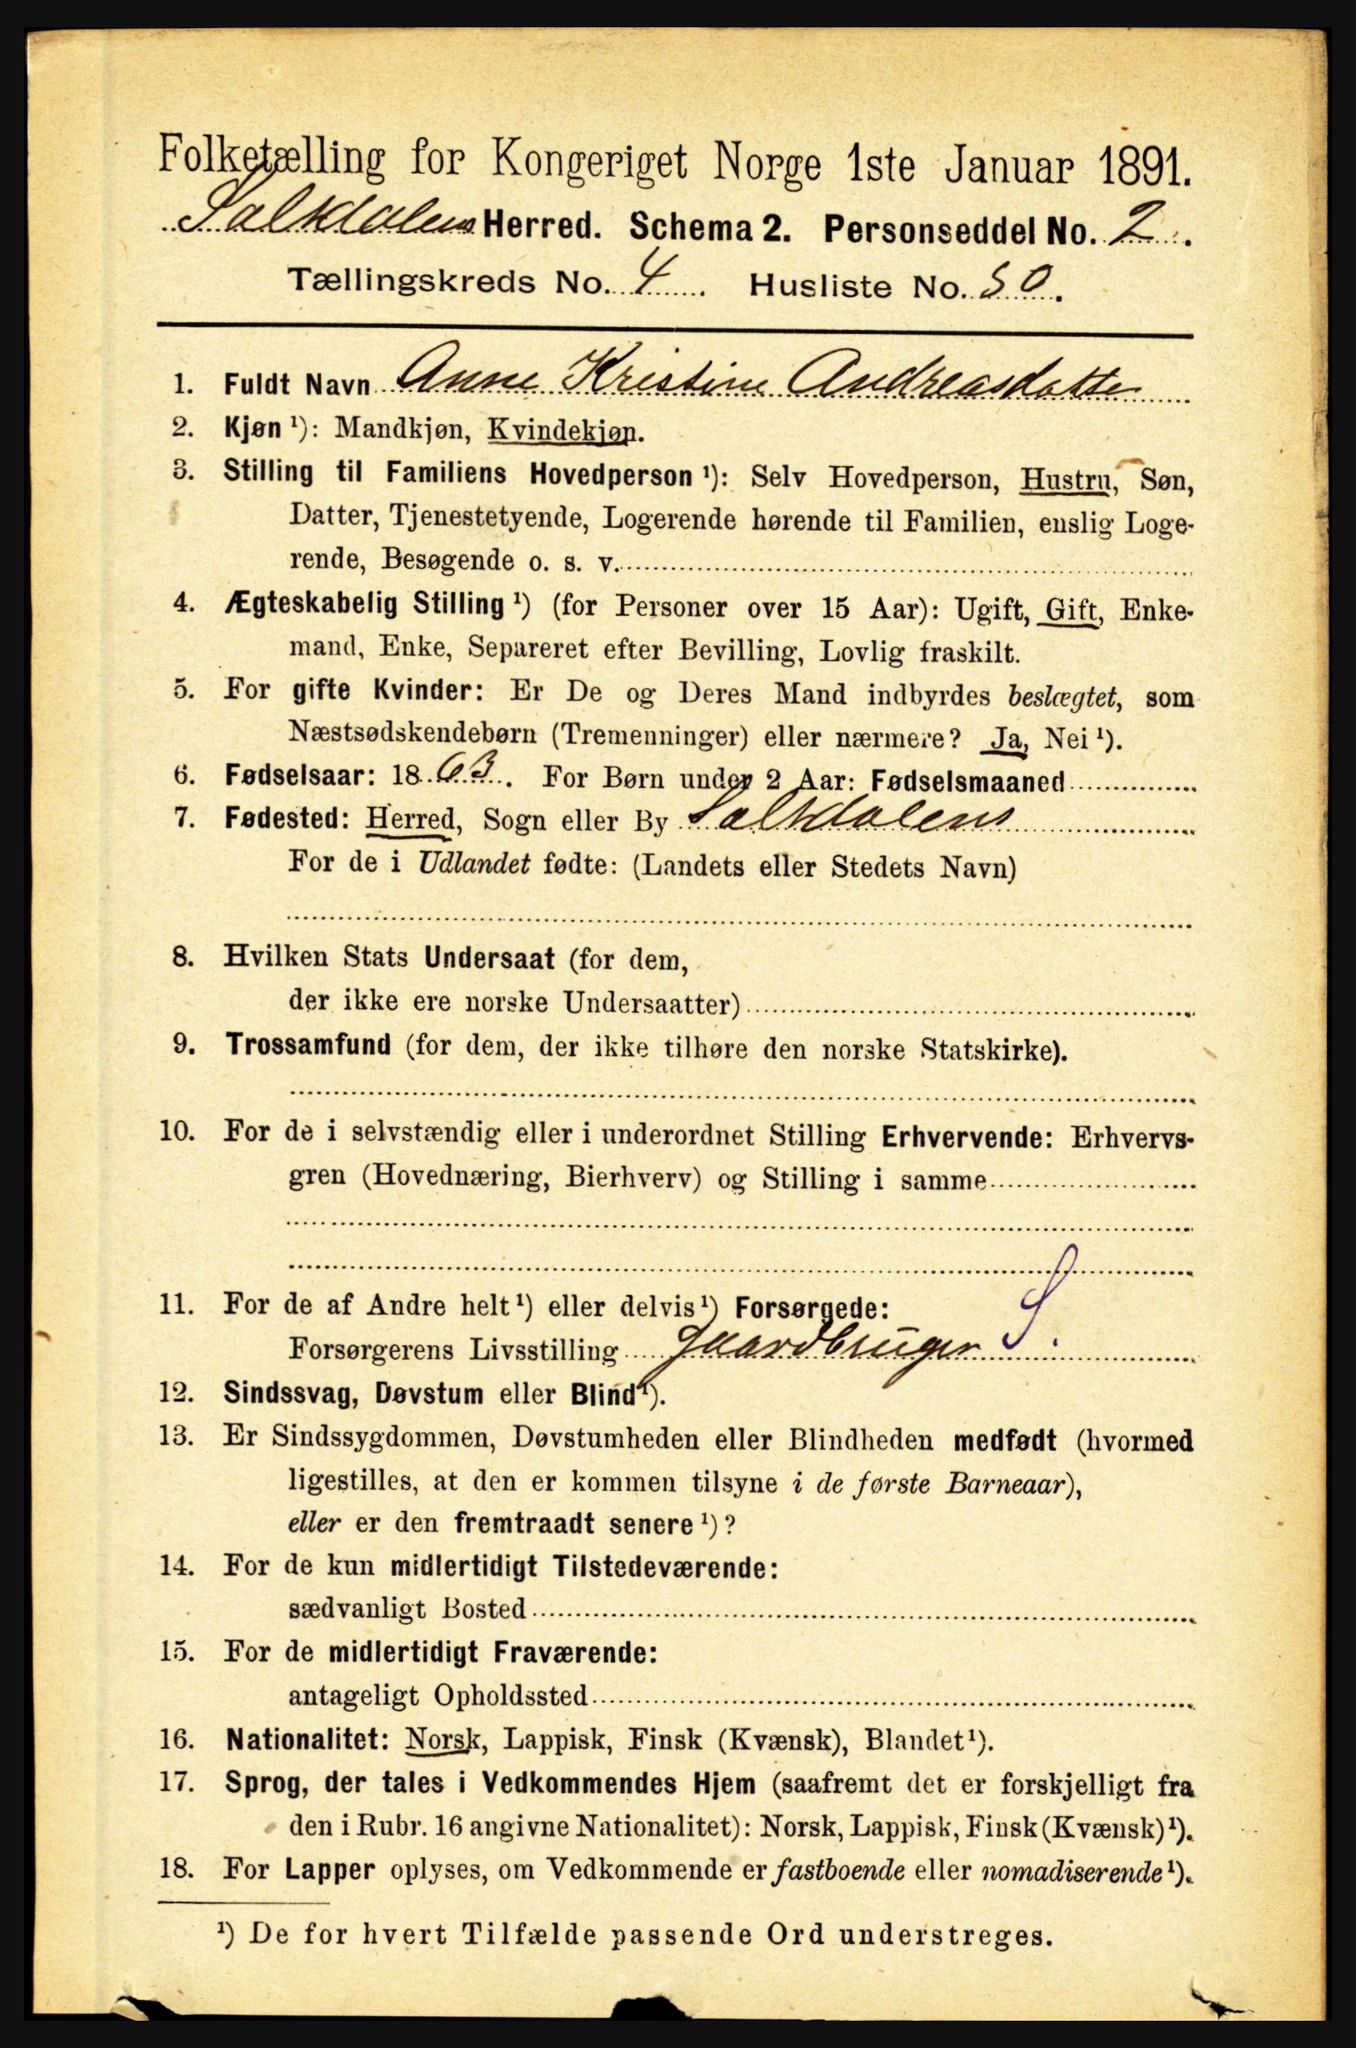 Folketælling for Kongeriget Norge 1ste Januar 1891.
Saltdalens Herred. Schema 2. Personseddel No. 2.
Tællingskreds No. 4. Husliste No. 50.
1. Fuldt Navn Anne Kristine Andreasdatter
2. Kjøn ¹): Mandkjøn, Kvindekjøn.
3. Stilling til Familiens Hovedperson ¹): Selv Hovedperson, Hustru, Søn,
Datter, Tjenestetyende, Logerende hørende til Familien, enslig Loge-
rende, Besøgende o. s. v.
4. Ægteskabelig Stilling ¹) (for Personer over 15 Aar): Ugift, Gift, Enke-
mand, Enke, Separeret efter Bevilling, Lovlig fraskilt.
5. For gifte Kvinder: Er De og Deres Mand indbyrdes beslægtet, som
Næstsødskendebørn (Tremenninger) eller nærmere? Ja, Nei ¹).
6. Fødselsaar: 1863. For Børn under 2 Aar: Fødselsmaaned
7. Fødested: Herred, Sogn eller By Saltdalens
For de i Udlandet fødte: (Landets eller Stedets Navn)
8. Hvilken Stats Undersaat (for dem,
der ikke ere norske Undersaatter)
9. Trossamfund (for dem, der ikke tilhøre den norske Statskirke).
10. For de i selvstændig eller i underordnet Stilling Erhvervende: Erhvervs-
gren (Hovednæring, Bierhverv) og Stilling i samme
11. For de af Andre helt ¹) eller delvis ¹) Forsørgede: S.
Forsørgerens Livsstilling Gaardbruger
12. Sindssvag, Døvstum eller Blind ¹).
13. Er Sindssygdommen, Døvstumheden eller Blindheden medfødt (hvormed
ligestilles, at den er kommen tilsyne i de første Barneaar),
eller er den fremtraadt senere ¹)?
14. For de kun midlertidigt Tilstedeværende:
sædvanligt Bosted
15. For de midlertidigt Fraværende:
antageligt Opholdssted
16. Nationalitet: Norsk, Lappisk, Finsk (Kvænsk), Blandet ¹).
17. Sprog, der tales i Vedkommendes Hjem (saafremt det er forskjelligt fra
den i Rubr. 16 angivne Nationalitet): Norsk, Lappisk, Finsk (Kvænsk) ¹).
18. For Lapper oplyses, om Vedkommende er fastboende eller nomadiserende ¹).
¹) De for hvert Tilfælde passende Ord understreges.